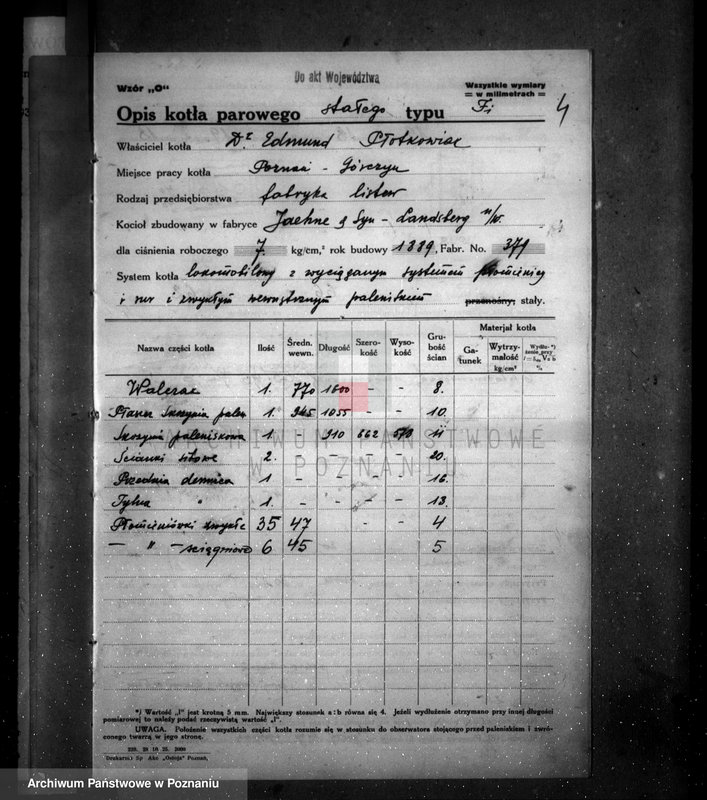 Do akt Województwa
Wzór „O“
Wszystkie wymiary
w milimetrach
Opis kotła parowego stałego typu Fi
4
Właściciel kotła Dr Edmund Płotkowiak
Miejsce pracy kotła Poznań - Górczyn
Rodzaj przedsiębiorstwa fabryka listew
Kocioł zbudowany w fabryce Jaehne & Syn - Landsberg n/W.
dla ciśnienia roboczego 7 kg/cm,² rok budowy 1889, Fabr. No. 379
System kotła lokomobilowy z wyciąganym systemem płomienicy
i rur i zwykłym wewnętrznym paleniskiem przenośny; stały.
Nazwa części kotła Ilość Średn. wewn. Długość Szerokość Wysokość Grubość ścian Materjał kotła
Gatunek Wytrzymałość kg/cm² Wydłużenie przy %
Walczak 1. 770 1800 - - 8.
Płaszcz skrzynia palen 1. 945 1055 - - 10.
Skrzynia paleniskowa 1 910 662 570 11
Ścianki sitowe 2. - - - - 20.
Przednia dennica 1 - - - - 16.
Tylna " 1. - - - - 13.
Płomieniówki zwykłe 35 47 - - 4
— " — ściągniowe 6 45 5
ARCHIWUM PAŃSTWOWE
W POZNANIU
*) Wartość „l“ jest krotną 5 mm. Największy stosunek a : b równa się 4. Jeżeli wydłużenie otrzymano przy innej długości
pomiarowej to należy podać rzeczywistą wartość „l“.
UWAGA. Położenie wszystkich części kotła rozumie się w stosunku do obserwatora stojącego przed paleniskiem i zwróconego twarzą w jego stronę.
Drukarnia Sp Akc „Ostoja“ Poznań,
Archiwum Państwowe w Poznaniu